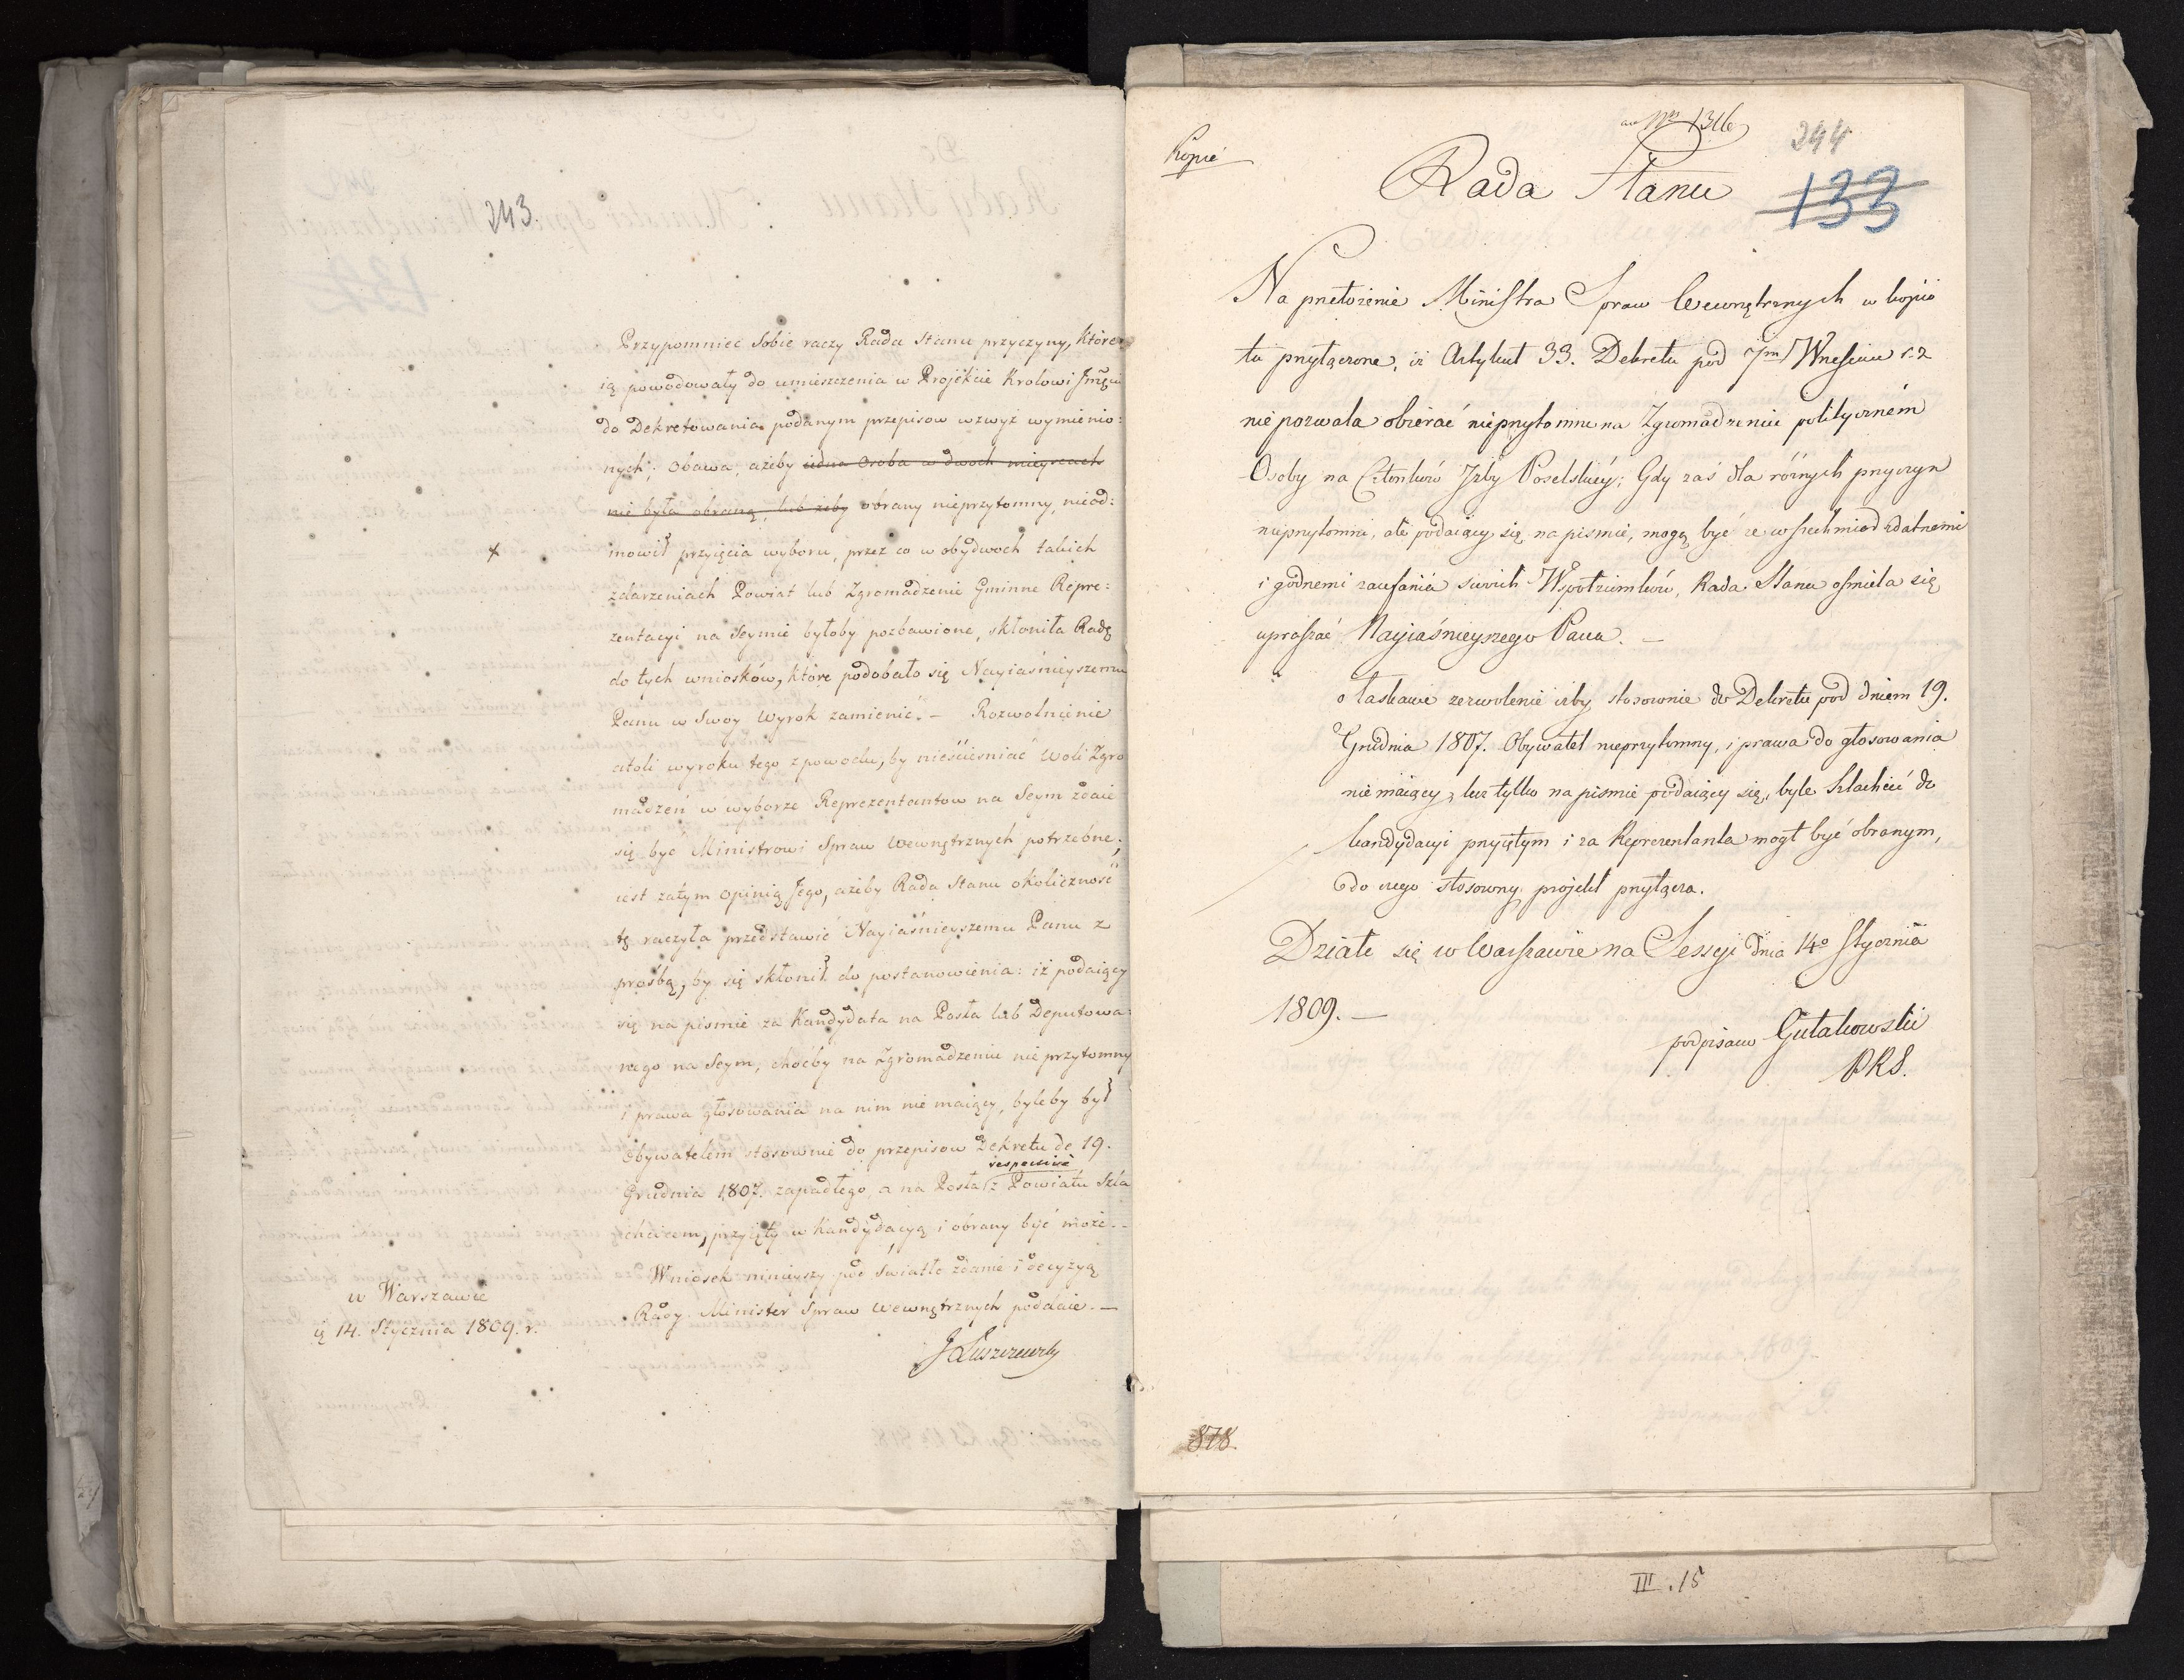 243.
Przypomniec Sobie raczy Rada Stanu przyczyny, które
ią powodowały do umieszczenia w Projekcie Krolowi Jmści
do Dekretowania podanym przepisow wzwyż wymienio:
nych; Obawa, ażeby iedna Osoba w dwoch mieyscach
nie była obraną, lub żeby obrany nieprzytomny, nieod:
mowił przyięcia wyboru, przez co w obydwoch takich
zdarzeniach Powiat lub Zgromadzenie Gminne Repre:
zentacyi na Seymie byłoby pozbawione, skłoniła Radę
do tych wniosków, które podobało się Nayiaśnieyszemu
Panu w Swoy Wyrok zamienić. — Rozwolnienie
atoli wyroku tego z powodu, by nieścieśniać Woli Zgro
madzeń w wyborze Reprezentantow na Seym zdaie
się być Ministrowi Spraw Wewnętrznych potrzebne;
iest zatym Opinią Jego, ażeby Rada Stanu okoliczność
tę raczyła przedstawić Nayiaśnieyszemu Panu z
prośbą, by się skłonił do postanowienia: iż podaiący
się na pismie za Kandydata na Posła lub Deputowa:
nego na Seym, choćby na Zgromadzeniu nieprzytomny
i prawa głosowania na nim nie maiący, byleby był
Obywatelem stosownie do przepisow Dekretu de 19.
respective
Grudnia 1807. zapadłego, a na Posła z Powiatu Szla
chcicem, przyięty w Kandydacyą i obrany być może. —
Wniosek ninieyszy pod światłe zdanie i decyzyą
Rady Minister Spraw Wewnętrznych poddaie. —
w Warszawie
14. Stycznia 1809. r.
J Łuszczewsky
Kopie
ad Nrm 1316
244
133
Rada Stanu
Na przełożenie Ministra Spraw Wewnętrznych w kopii
tu przyłączone, iż Artykuł 33. Dekretu pod 7m Wrześniu r. z
nie pozwala obierać nieprzytomne na Zgromadzeniu polityczném
Osoby na Członków Izby Poselskiéy; Gdy zaś dla różnych przyczyn
nieprzytomni, ale podaiący się na pismie, mogą być ze wszechmiar zdatnemi
i godnemi zaufania swoich Współziomków, Rada Stanu ośmiela się
upraszać Nayiaśnieyszego Pana. —
o łaskawe zezwolenie iżby stosownie do Dekretu pod dniem 19.
Grudnia 1807. Obywatel nieprzytomny, i prawa do głosowania
nie maiący, lecz tylko na pismie podaiący się, byle Szlachcic do
kandydacyi przyiętym i za Reprezentanta mogł być obranym,
do czego stosowny projekt przyłącza.
Działo się w Warszawie na Sessyi dnia 14o Stycznia
1809. —
podpisano Gutakowski
PRS.
878.
III. 15